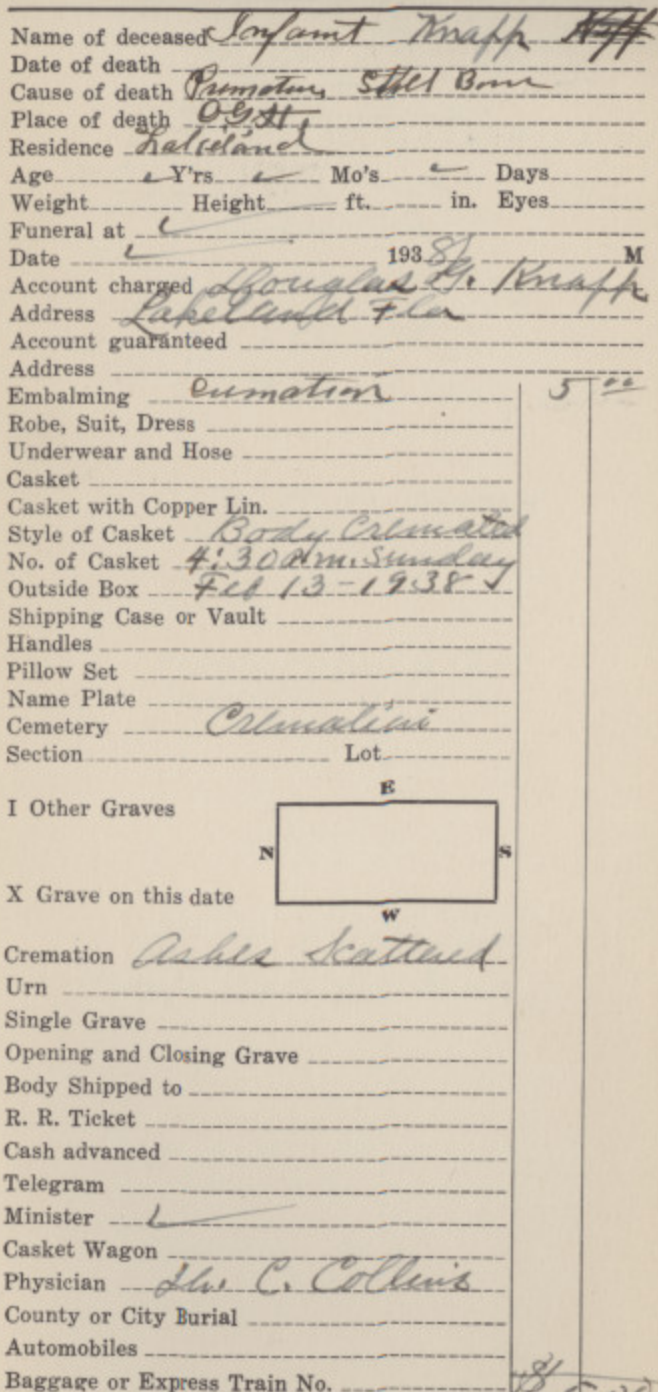 Name of deceased Infant Knapp
Date of death
Cause of death Premature Still Born
Place of death O.G.H.
Residence Lakeland
Age Y'rs Mo's Days
Weight Height ft. in. Eyes
Funeral at
Date 1938 M
Account charged Douglas G. Knapp
Address Lakeland Fla
Account guaranteed
Address
Embalming Cremation 5 00
Robe, Suit, Dress
Underwear and Hose
Casket
Casket with Copper Lin.
Style of Casket Body Cremated
No. of Casket 4:30 a.m. Sunday
Outside Box Feb 13-1938
Shipping Case or Vault
Handles
Pillow Set
Name Plate
Cemetery Cremation
Section Lot
E
I Other Graves
N S
X Grave on this date
W
Cremation Ashes Scattered
Urn
Single Grave
Opening and Closing Grave
Body Shipped to
R. R. Ticket
Cash advanced
Telegram
Minister
Casket Wagon
Physician C. Collins
County or City Burial
Automobiles
Baggage or Express Train No.